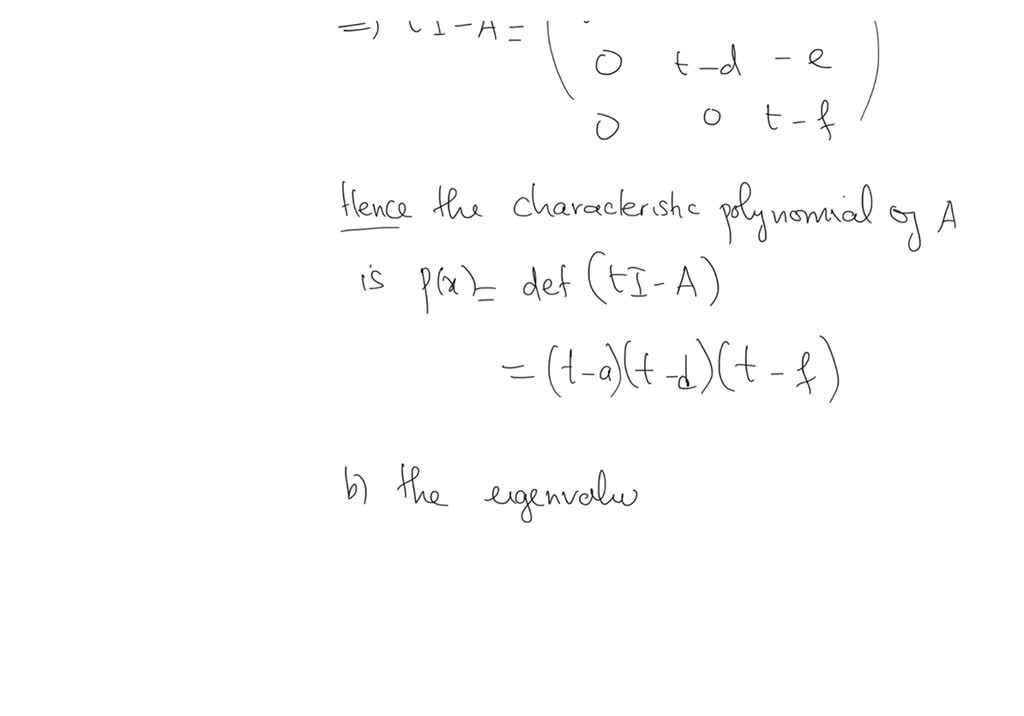 =) tI-A=
0 t-d -e
0 0 t-f
Hence the characteristic polynomial of A
is p(x)= det (tI-A)
=(t-a)(t-d)(t-f)
b) the eigenvalu